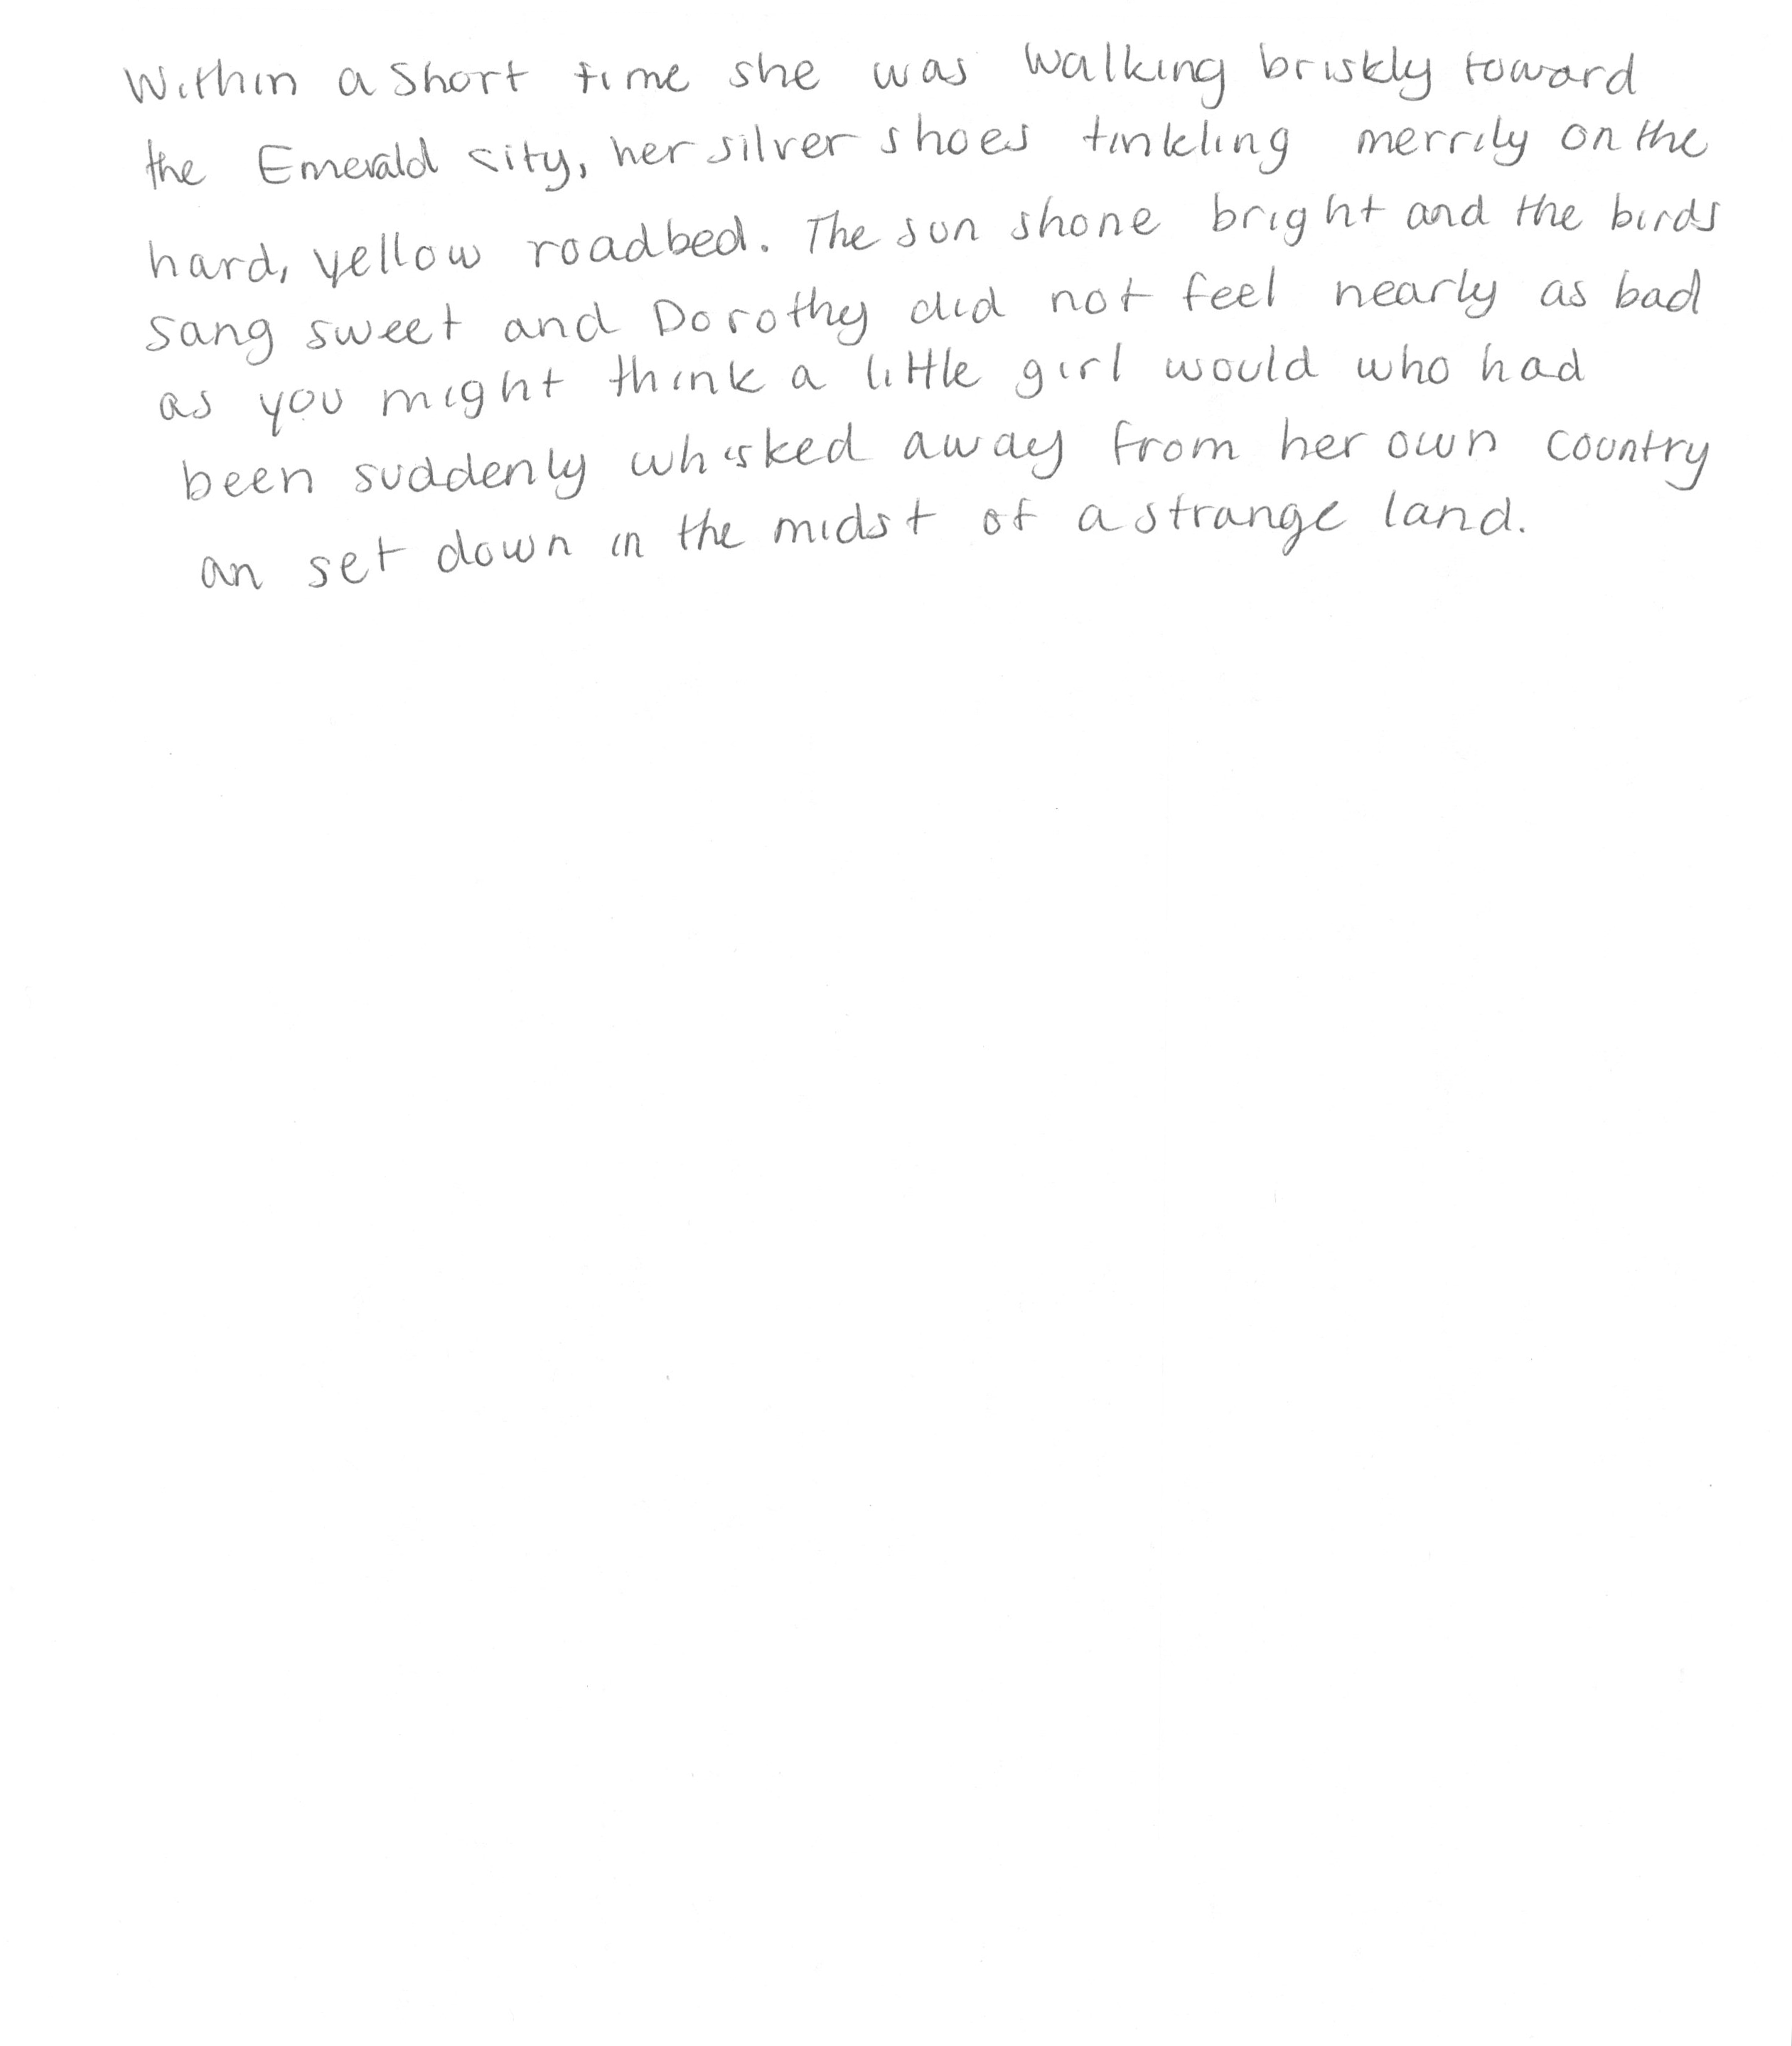 Within a short time she was walking briskly toward
the Emerald city, her silver shoes tinkling merrily on the
hard, yellow roadbed. The sun shone bright and the birds
sang sweet and Dorothy did not feel nearly as bad
as you might think a little girl would who had
been suddenly whisked away from her own country
an set down in the midst of a strange land.